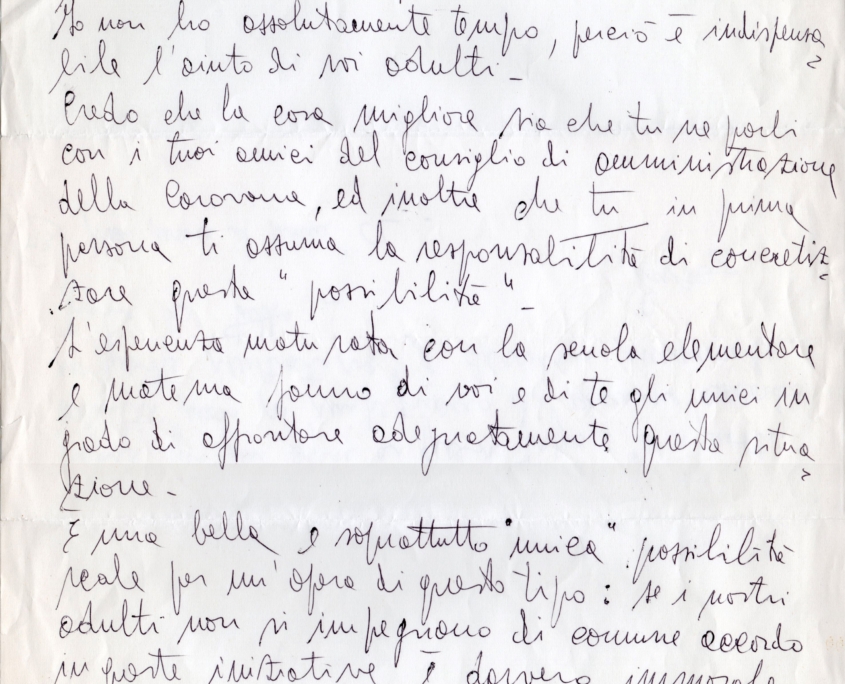 Io non ho assolutamente tempo, perciò è indispensa
bile l'aiuto di voi adulti -
Credo che la cosa migliore sia che tu ne parli
con i tuoi amici del consiglio di amministrazione
della Carovana, ed inoltre che tu in prima
persona ti assuma la responsabilità di concretiz
zare questa "possibilità" -
L'esperienza maturata con la scuola elementare
e materna fanno di voi e di te gli unici in
grado di affrontare adeguatamente questa situa
zione -
È una bella e soprattutto "unica" possibilità
reale per un'opera di questo tipo: se i nostri
adulti non si impegnano di comune accordo
in queste iniziative è davvero immorale